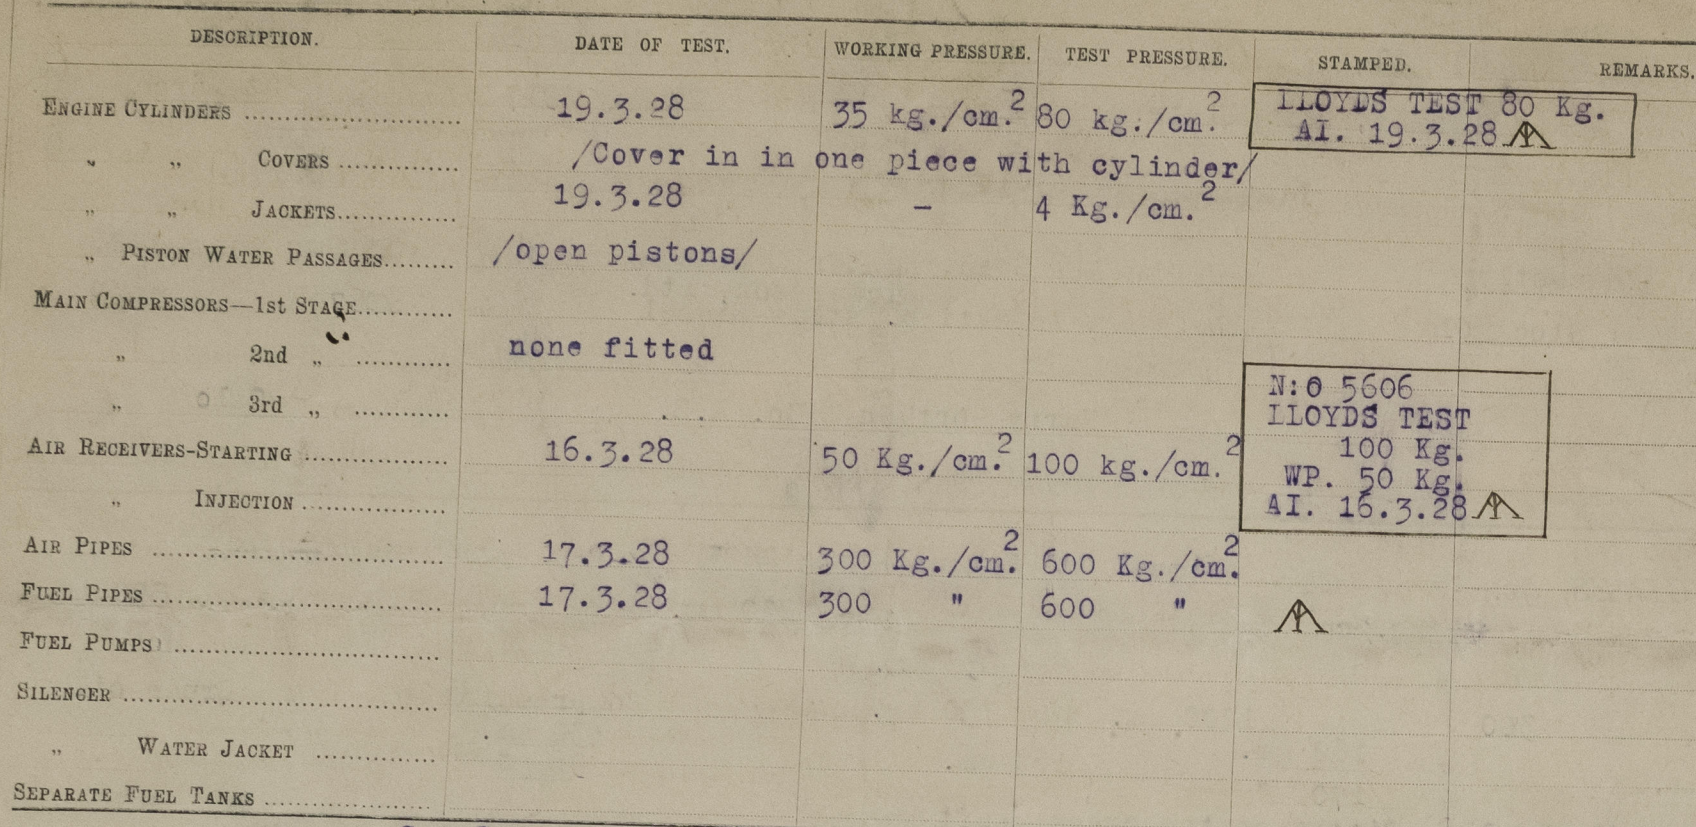 DESCRIPTION. DATE OF TEST. WORKING PRESSURE. TEST PRESSURE. STAMPED. REMARKS.
ENGINE CYLINDERS .......................... 19.3.28 35 kg./cm.² 80 kg./cm.² LLOYDS TEST 80 Kg.
AI. 19.3.28
„ „ COVERS .............. /Cover in in one piece with cylinder/
„ „ JACKETS.............. 19.3.28 – 4 Kg./cm.²
„ PISTON WATER PASSAGES......... /open pistons/
MAIN COMPRESSORS—1st STAGE............
„ 2nd „ ............ none fitted
„ 3rd „ ............
N:o 5606
LLOYDS TEST
100 Kg.
WP. 50 Kg.
AI. 16.3.28
AIR RECEIVERS-STARTING .................. 16.3.28 50 Kg./cm.² 100 kg./cm.²
„ INJECTION ..................
AIR PIPES .................................... 17.3.28 300 Kg./cm.² 600 Kg./cm.²
FUEL PIPES .................................... 17.3.28 300 " 600 "
FUEL PUMPS .................................
SILENCER .......................................
„ WATER JACKET ...............
SEPARATE FUEL TANKS .....................